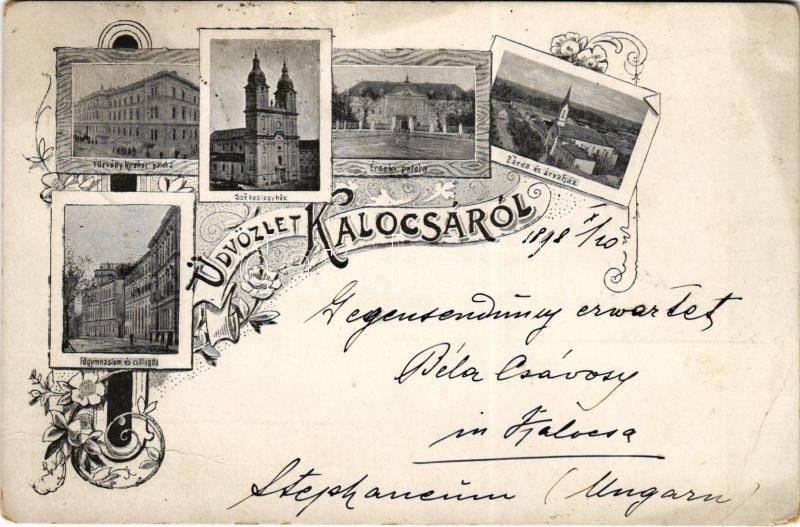 Törvény kezési palota
Székesegyház
Érseki palota
Zárda és árvaház
ÜDVÖZLET KALOCSÁRÓL
1898 X/20
Főgymnasium és csillagda
Gegensendung erwartet
Béla Csávosy
in Kalocsa
Stephaneum (Ungarn)